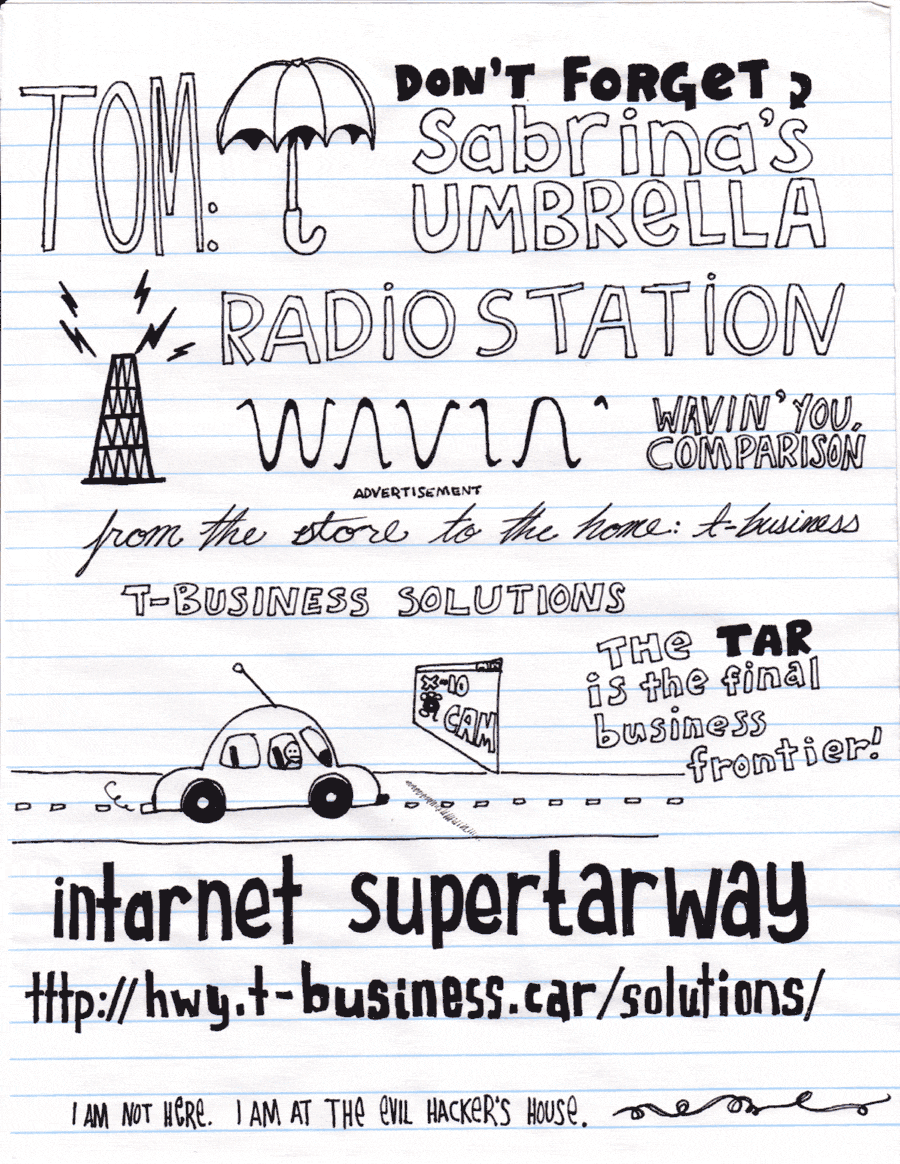 TOM:
DON'T FORGET
Sabrina's
UMBRELLA
RADIO STATION
WAVIN'
WAVIN' YOU,
COMPARISON
ADVERTISEMENT
from the store to the home: t-business
T-BUSINESS SOLUTIONS
THE TAR
is the final
business
frontier!
X-10
CAM
intarnet supertarway
tttp://hwy.t-business.car/solutions/
I AM NOT HERE. I AM AT THE EVIL HACKER'S HOUSE.